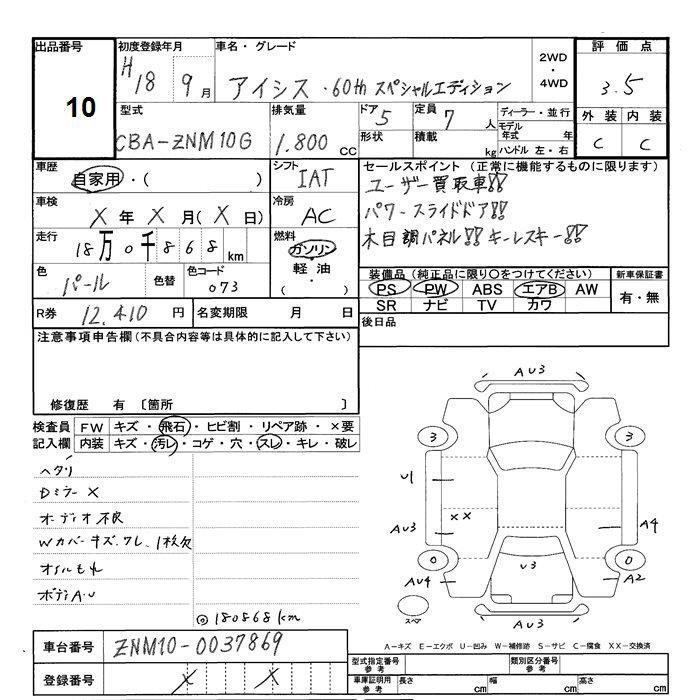 出品番号
10
初度登録年月
H18 9月
車名・グレード
アイシス・60thスペシャルエディション
2WD・4WD
評価点
3.5
外装 内装
C C
型式
CBA-ZNM10G
排気量
1.800 CC
ドア 5
形状
定員 7 人
積載 kg
ディーラー・並行
モデル年式 年
ハンドル 左・右
車歴
自家用・( )
シフト
IAT
セールスポイント(正常に機能するものに限ります)
ユーザー買取車!!
パワースライドドア!!
木目調パネル!! キーレスキー!!
車検
X年X月(X日)
冷房
AC
走行
18万0千868km
燃料
ガソリン
・
軽油
・
( )
色
パール
色替
色コード
073
装備品(純正品に限り○をつけてください)
PS PW ABS エアB AW
SR ナビ TV カワ
新車保証書
有・無
R券 12.410 円
名変期限 月 日
後日品
注意事項申告欄(不具合内容等は具体的に記入して下さい)
修復歴 有 〔箇所 〕
検査員記入欄
FW キズ・飛石・ヒビ割・リペア跡・×要
内装 キズ・汚レ・コゲ・穴・スレ・キレ・破レ
ヘタリ
Dミラー X
オーディオ不良
Wカバーキズ、ワレ、1枚欠
オイルもれ
ボディA・U
◎180868km
AU3
3 3
U1
AU3 XX A4
0 0
U3
AU4 A2
スペア
AU3
A-キズ E-エクボ U-凹み W-補修跡 S-サビ C-腐食 XX-交換済
車台番号 ZNM10-0037869
登録番号 X X
型式指定番号 参考
類別区分番号 参考
車庫証明用 参考
長さ cm
幅 cm
高さ cm